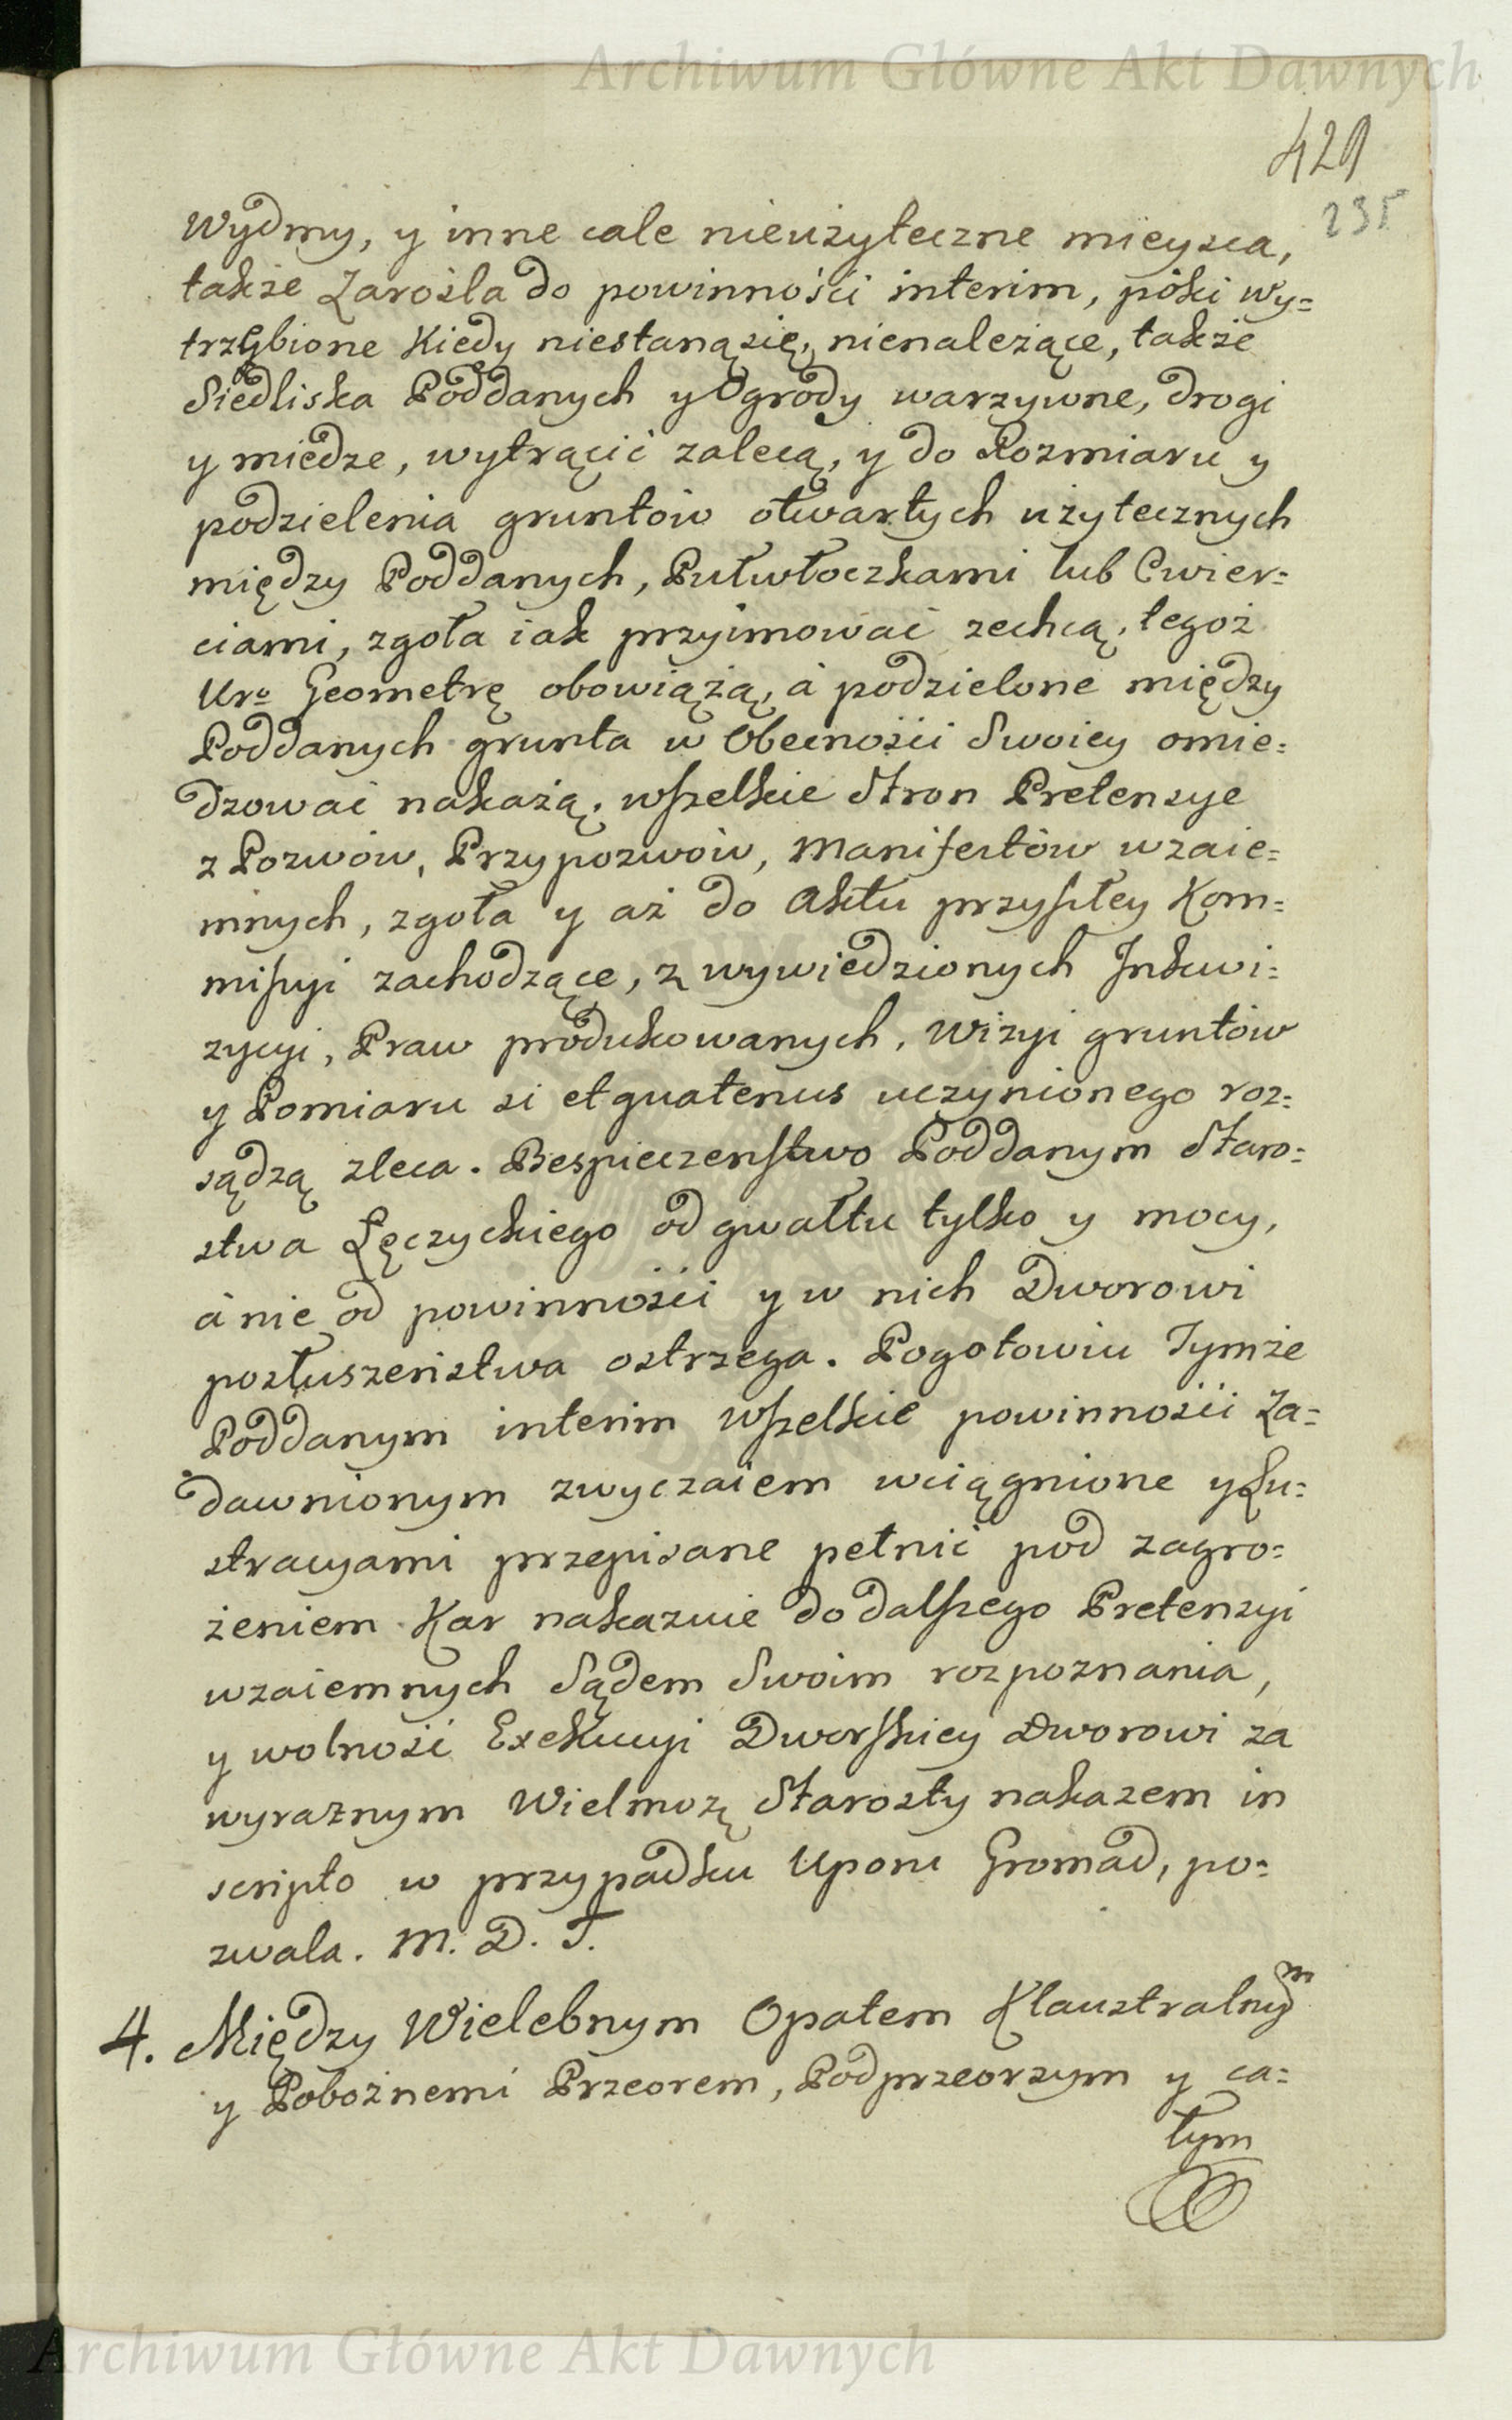 Archiwum Główne Akt Dawnych
429
235
Wydmy, y inne cale nieużyteczne mieysca,
także Zarośla do powinności interim, póki wy=
trzębione Kiedy niestaną się, nienależące, także
Siedliska Poddanych y Ogrody warzywne, drogi
y miedze, wytrącić zalecą, y do Rozmiaru y
podzielenia gruntów otwartych użytecznych
między Poddanych, Pułwłoczkami lub Cwier=
ciami, zgoła iak przyimować zechcą, tegoż
Uro Geometrę obowiążą, á podzielone między
Poddanych grunta w Obecności Swoiey omie=
dzować nakażą, wszelkie Stron Pretensye
z Pozwów, Przypozwów, Manifestów wzaie=
mnych, zgoła y aż do Aktu przyszłey Kom=
missyi zachodzące, z wywiedzionych Inkwi=
zycyi, Praw produkowanych, Wizyi gruntów
y Pomiaru si et quatenus uczynionego roz=
sądzą zleca. Bespieczenstwo Poddanym Staro=
stwa Łęczyckiego od gwałtu tylko y mocy,
á nie od powinności y w nich Dworowi
posłuszeństwa ostrzega. Pogotowiu Tymże
Poddanym interim wszelkie powinności Za=
dawnionym zwyczaiem wciągnione y Lu=
stracyami przepisane pełnić pod zagro=
żeniem Kar nakazuie do dalszego Pretensyi
wzaiemnych Sądem Swoim rozpoznania,
y wolność Exekucyi Dworskiey Dworowi za
wyraznym Wielmoż Starosty nakazem in
scripto w przypadku Uporu Gromad, po=
zwala. M. D. T.
4. Między Wielebnym Opatem Klaustralnym
y Pobożnemi Przeorem, Podprzeorzym y ca=
łym
Archiwum Główne Akt Dawnych